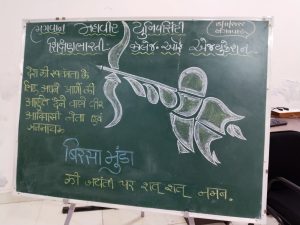 भगवान महावीर युनिवर्सिटी
कॉलेज ऑफ एज्युकेशन
देश की स्वतंत्रता के
लिए अपने प्राणों की
आहुति देने वाले वीर
आदिवासी नेता एवं
जननायक
बिरसा मुंडा
की जयंती पर शत् शत् नमन.